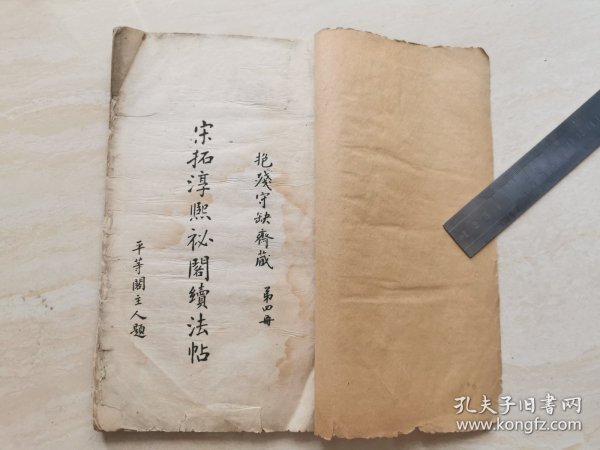 抱殘守缺齋藏 第四冊
宋拓淳熙祕閣續法帖
平等閣主人題
孔夫子旧书网
www.kongfz.com